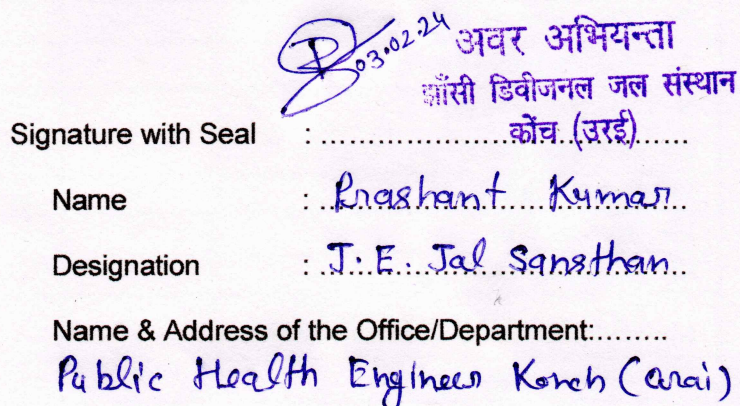 03.02.24 अवर अभियन्ता
झाँसी डिवीजनल जल संस्थान
कोंच (उरई)
Signature with Seal : ....................................
Name : Prashant Kumar
Designation : J.E. Jal Sansthan
Name & Address of the Office/Department:........
Public Health Engineer Konch (Orai)